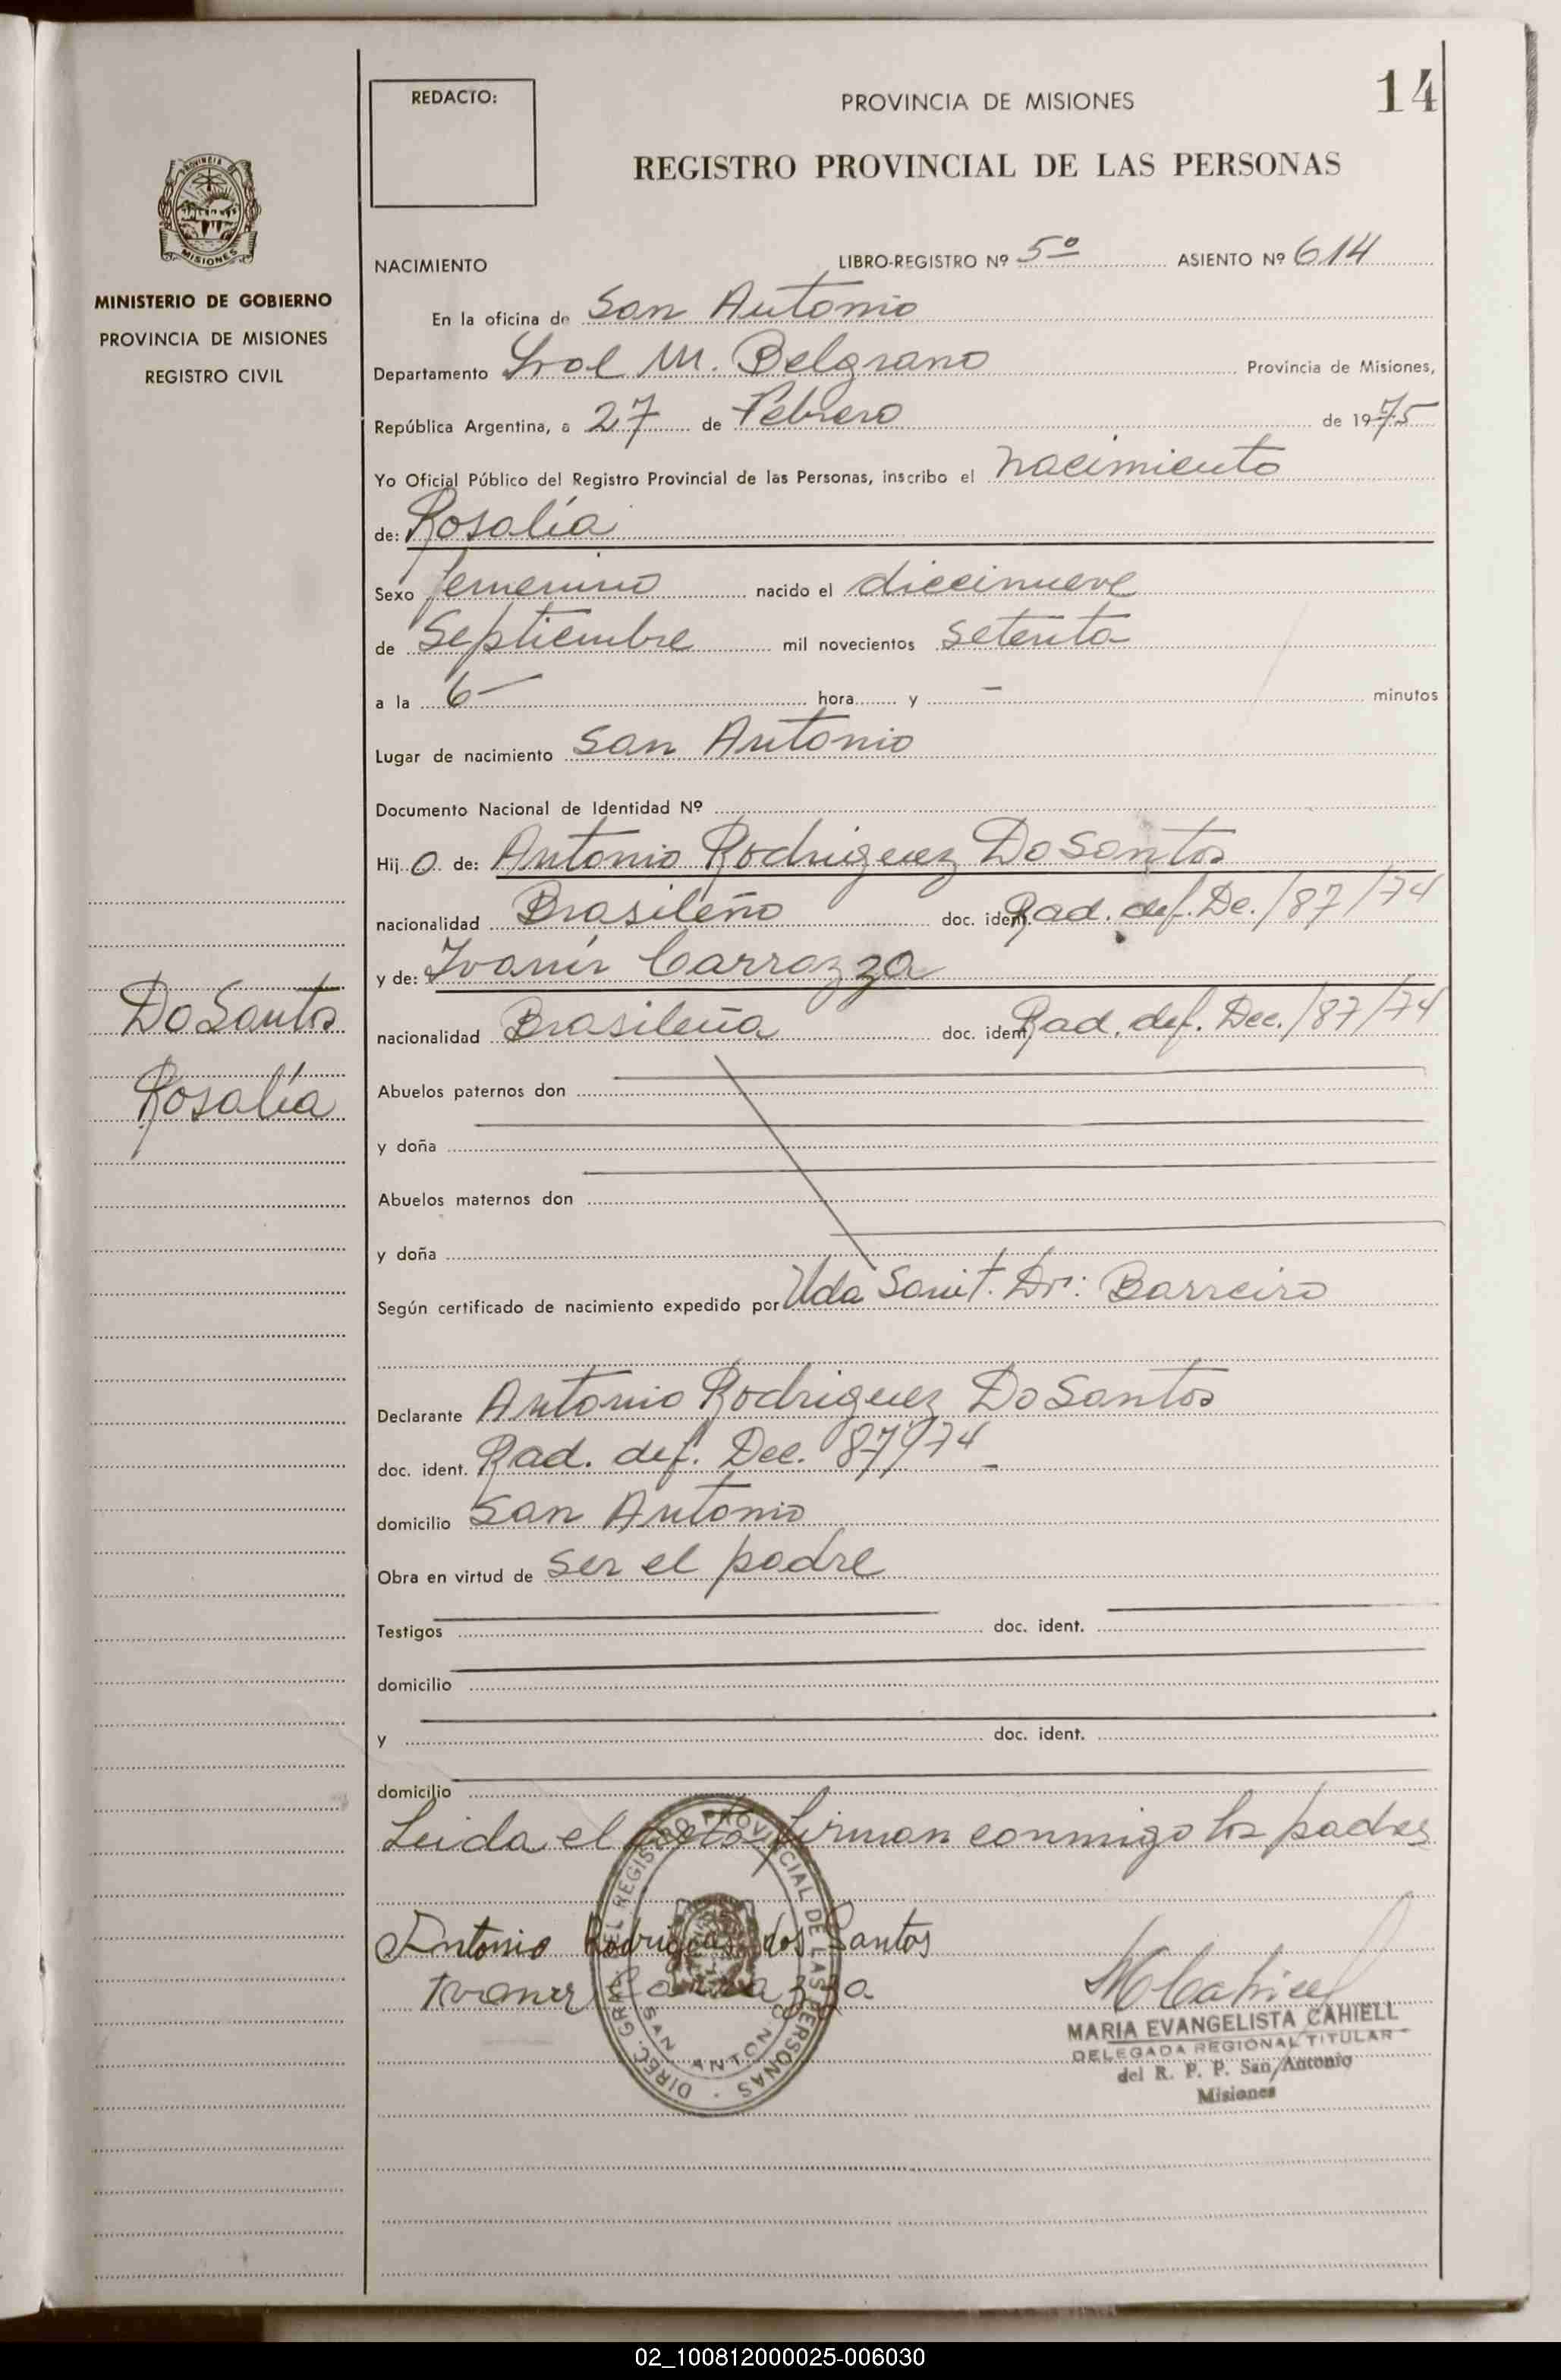 REDACTO:
PROVINCIA DE MISIONES
14
REGISTRO PROVINCIAL DE LAS PERSONAS
PROVINCIA DE
MISIONES
MINISTERIO DE GOBIERNO
PROVINCIA DE MISIONES
REGISTRO CIVIL
NACIMIENTO LIBRO-REGISTRO Nº 5º ASIENTO Nº 614
En la oficina de San Antonio
Departamento Gral M. Belgrano Provincia de Misiones,
República Argentina, a 27 de Febrero de 1975
Yo Oficial Público del Registro Provincial de las Personas, inscribo el nacimiento
de: Rosalía
Sexo femenino nacido el diecinueve
de Septiembre mil novecientos setenta
a la 6— hora y — minutos
Lugar de nacimiento San Antonio
Documento Nacional de Identidad Nº
Hijo de: Antonio Rodriguez Do Santos
nacionalidad Brasileño doc. ident. Rad. def. De. /87/74
y de: Ivanir Carrozza
nacionalidad Brasileña doc. ident. Rad. def. Dec. /87/74
Do Santos
Rosalía
Abuelos paternos don
y doña
Abuelos maternos don
y doña
Según certificado de nacimiento expedido por Uda Sanit. Dr: Barreiro
Declarante Antonio Rodriguez Do Santos
doc. ident. Rad. def. Dec. 87/74 —
domicilio San Antonio
Obra en virtud de ser el padre
Testigos doc. ident.
domicilio
y doc. ident.
domicilio
Leida el acta, firman conmigo los padres
Antonio Rodrigues dos Santos
Ivanir Carrazza
DIREC. GRAL. DEL REGISTRO PROVINCIAL DE LAS PERSONAS
SAN ANTONIO
MCahiell
MARIA EVANGELISTA CAHIELL
DELEGADA REGIONAL TITULAR
del R. P. P. San Antonio
Misiones
02_100812000025-006030